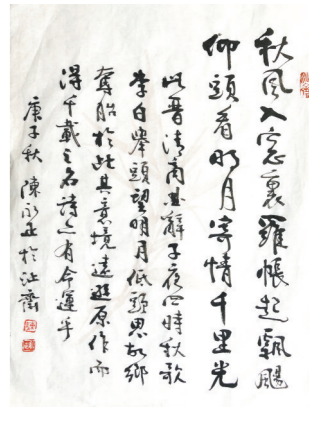 秋風入窓裏羅帳起飄颺
仰頭看明月寄情千里光
此晋清商曲辭子夜四時秋歌
李白舉頭望明月低頭思故鄉
奪胎於此其意境遠遜原作而
得千載之名詩之有命運乎
庚子秋陳永正於沚齋